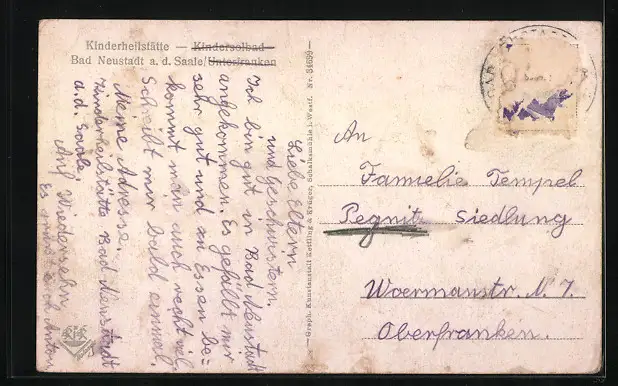 Kinderheilstätte — Kindersolbad
Bad Neustadt a. d. Saale/Unterfranken
Liebe Eltern
und Geschwistern.
Ich bin gut in Bad Neustadt
angekommen. Es gefällt mir
sehr gut und zu Essen be-
kommt man auch recht viel.
Schreibt mir bald einmal.
Meine Adresse
Kinderheilstätte Bad Neustadt
a. d. Saale
Auf Wiedersehn
Es grüßt euch Anton
Graph. Kunstanstalt Kettling & Krüger, Schalksmühle i. Westf. Nr. 34639
An
Familie Tempel
Pegnitz Siedlung
Woermanstr. N. 7.
Oberfranken.